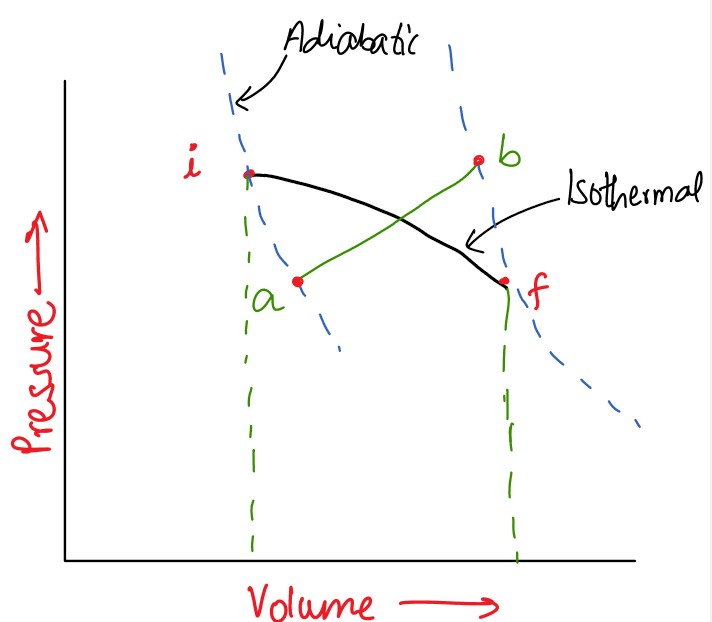 Adiabatic
i
b
Isothermal
a
f
Pressure
Volume